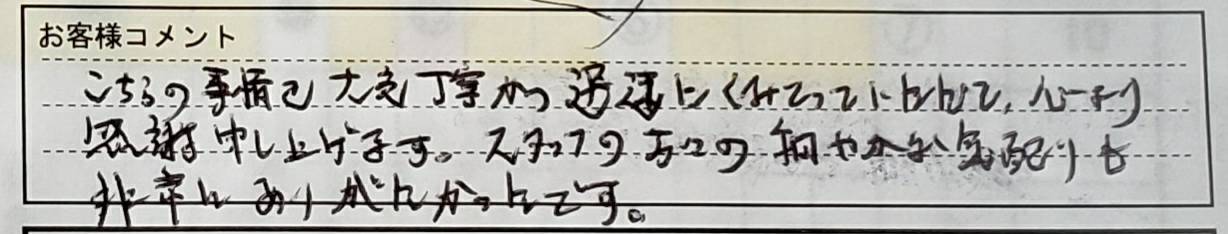 お客様コメント
こちらの事情を大変丁寧かつ迅速にくみとっていただいて、心より
感謝申し上げます。スタッフの方々の細やかな気配りも
非常にありがたかったです。